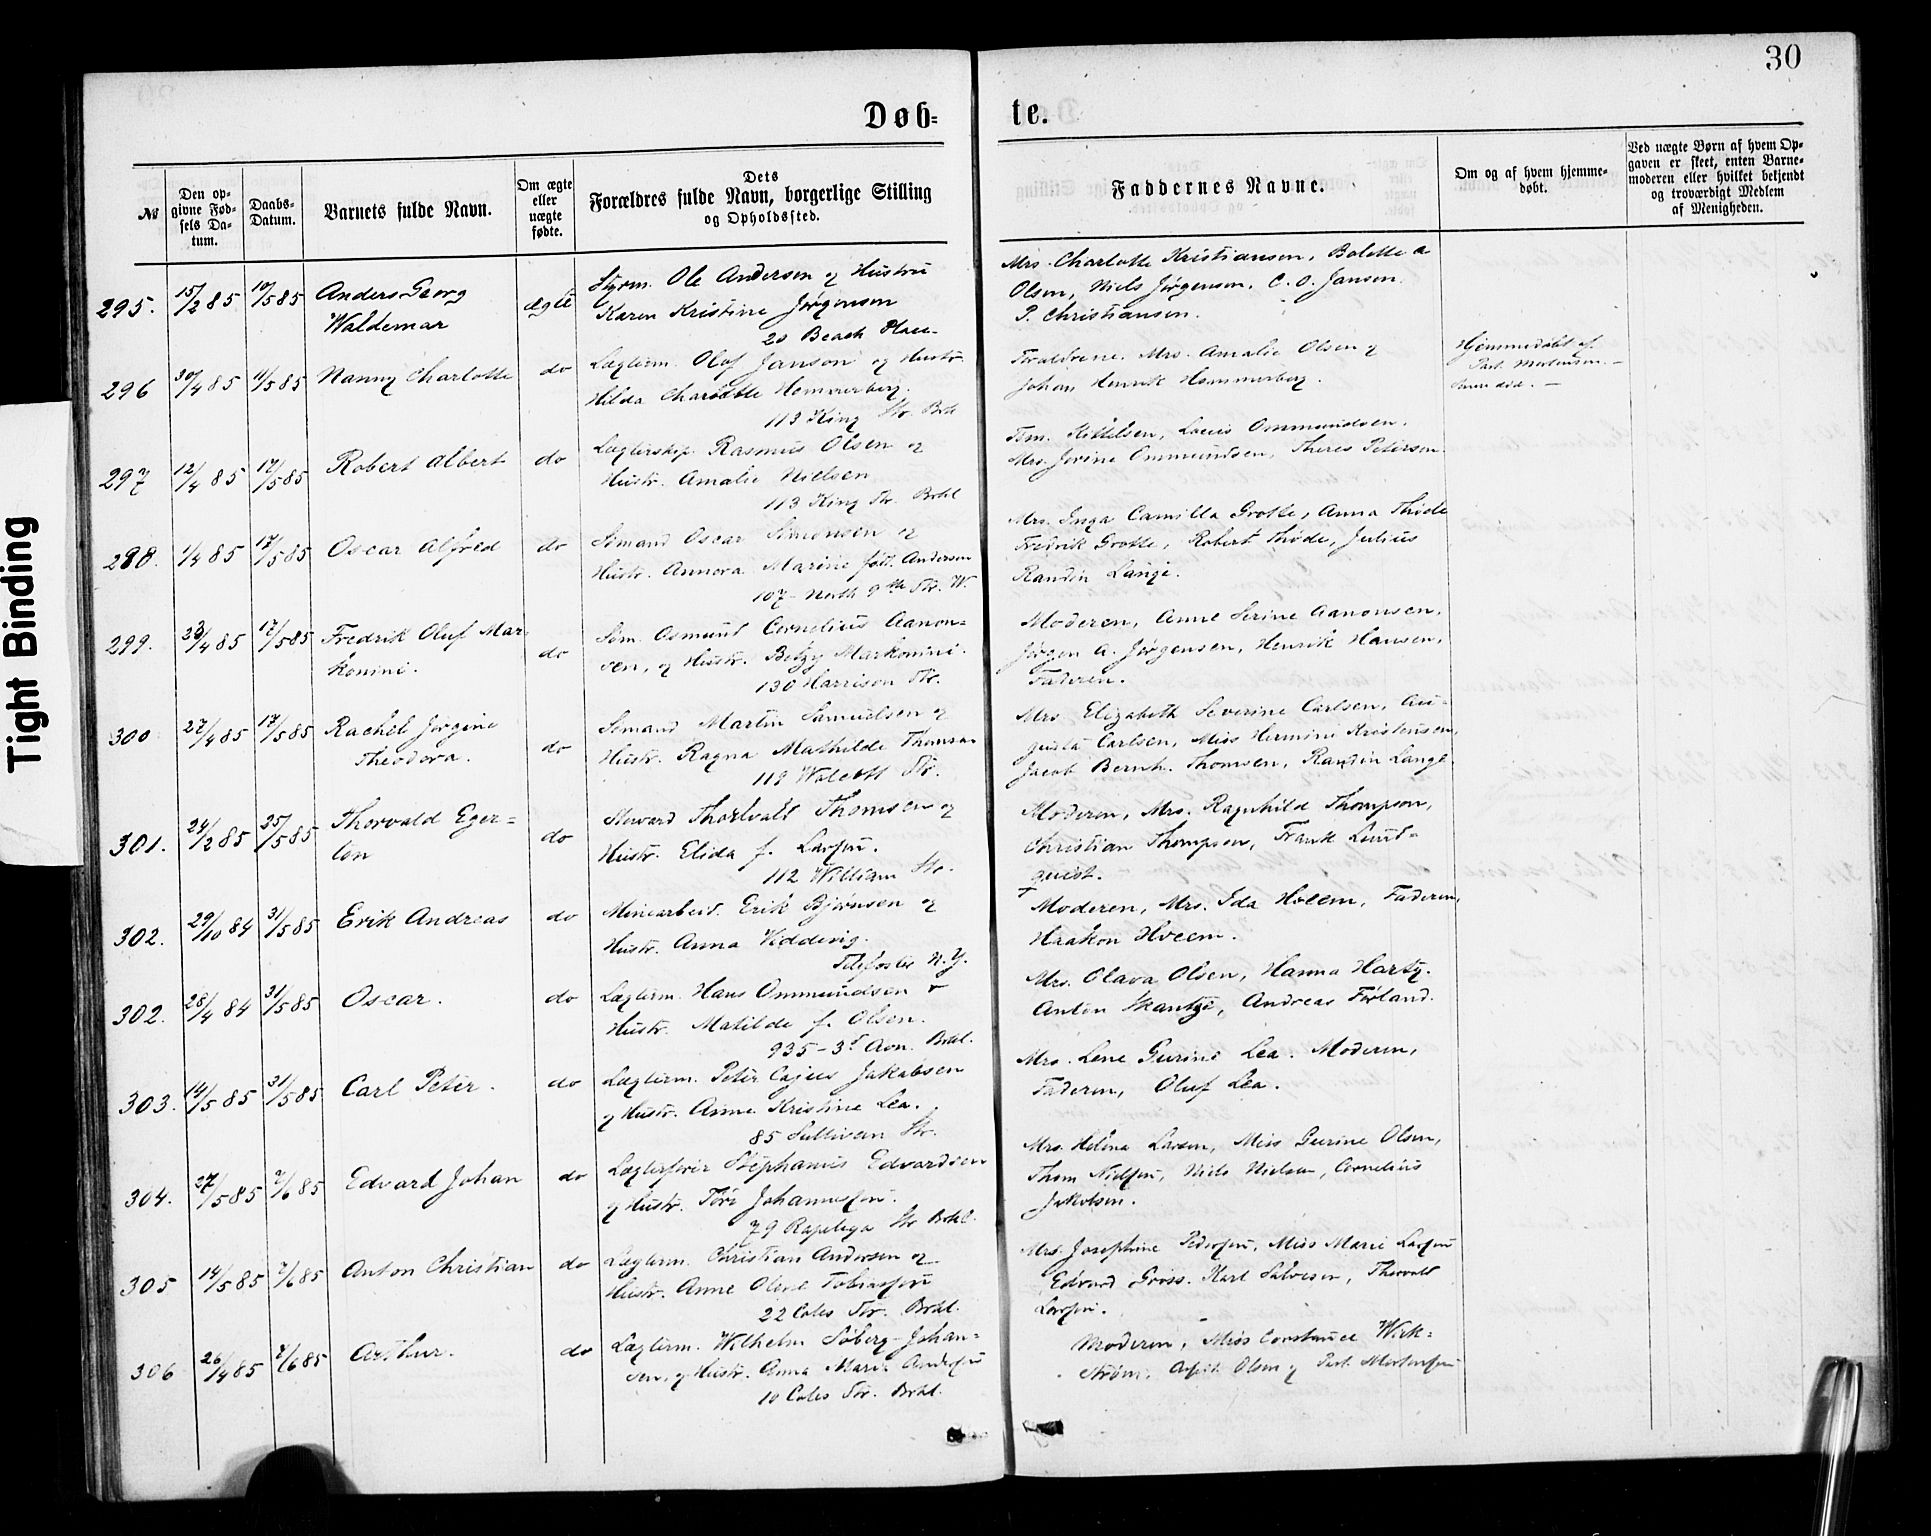 30
Døb-
te.
№
Den op-
givne Fød-
sels Da-
tum.
Daabs-
Datum.
Barnets fulde Navn.
Om ægte
eller
uægte
fødte.
Dets
Forældres fulde Navn, borgerlige Stilling
og Opholdssted.
Faddernes Navne.
Om og af hvem hjemme-
døbt.
Ved uægte Børn af hvem Op-
gaven er skeet, enten Barne-
moderen eller hvilket bekjendt
og troværdigt Medlem
af Menigheden.
295. 15/2 85 10/5 85 Anders Georg
Waldemar
ægte
Styrm. Ole Andersen og Hustru
Karen Kristine Jørgensen
20 Beach Place
Mrs. Charlotte Kristiansen, Bolette a
Olsen, Niels Jørgensen, C. O. Jansen.
P. Christiansen.
296 30/4 85 11/5 85 Nanny Charlotte do
Lægterm. Olof Janson og Hustr.
Hilda Charlotte Hemmerberg.
113 King Str. Brkl
Forældrene. Mrs. Amalie Olsen og
Johan Henrik Hemmerberg.
Hjemmedøbt af
Past. Mortensen. —
297 12/4 85 17/5 85 Robert Albert do
Lægterskip. Rasmus Olsen og
Hustr. Amalie Nielsen
113 King Str. Brkl
Tom. Kittelsen, Louis Ommundsen.
Mrs. Jorine Ommundsen, Theres Petersen.
298. 1/4 85 17/5 85 Oscar Alfred do
Sømand Oscar Simonsen og
Hustr. Annora Marine født Andersen
107 - North 9th Str. W.
Mrs. Inga Camilla Grotte, Anna Thide
Fredrik Grotte, Robert Thøde, Julius
Randin Lange.
299. 23/4 85 17/5 85 Fredrik Oluf Mar-
konini. do
Søm. Osmund Cornelius Aanon-
sen, og Hustr. Betzy Markonini.
130 Harrison Str.
Moderen, Anne Serine Aanonsen.
Jørgen A. Jørgensen, Henrik Hansen,
Faderen.
300 27/4 85 17/5 85 Rachel Jørgine
Theodora. do
Sømand Martin Samuelsen og
Hustr. Ragna Mathilde Thomsen
119 Walcott Str.
Mrs Elizabeth Severine Carlsen, Au-
gusta Carlsen, Miss Hermine Kristensen,
Jacob Bernh. Thomsen, Randin Lange
301. 24/2 85 25/5 85 Thorvald Eger-
ton do
Steward Thorlvald Thomsen og
Hustr. Elida f. Larsen.
112 William Str.
Moderen, Mrs. Ragnhild Thompson,
Christian Thompson, Frank Lind-
quist.
302. 29/10 84 31/5 85 Erik Andreas do
Minearbeid. Erik Bjørnsen og
Hustr. Anna Veddevig.
N. Y.
Moderen, Mrs. Ida Hveem, Faderen,
Haakon Hveem.
302. 28/4 84 31/5 85 Oscar. do
Lægterm. Hans Ommundsen
Hustr. Matilde f. Olsen.
935 - 3d Avn. Brkl.
Mrs. Olava Olsen, Hanna Hartz.
Anton Skantze, Andreas Førland.
303. 14/5 85 31/5 85 Carl Peter. do
Lægterm. Peter Cajus Jakobsen
og Hustr. Anne Kristine Lea.
85 Sullivan Str.
Mrs. Lene Gurine Lea. Moderen,
Faderen, Oluf Lea.
304. 27/5 85 7/6 85 Edvard Johan do
Stephanus Edvardsen
og Hustr. Tore Johannesen.
79 Rapelyea Str Brkl.
Mrs. Helene Larsen, Miss Gurine Olsen,
Thom Nielsen, Niels Nielsen, Cornelius
Jakobsen.
305 14/5 85 7/6 85 Anton Christian do
Lægterm. Christian Andersen og
Hustr. Anne Olene Tobiassen
22 Coles Str. Brkl.
Mrs. Josephine Pedersen, Miss Marie Larsen
Edvard Gross. Karl Salvesen, Thorvald
Larsen.
306 26/4 85 7/6 85 Arthur. do
Lægterm. Wilhelm Søberg Johan-
sen, og Hustr. Anna Marie Andersen
10 Coles Str. Brkl.
Moderen, Miss Constance Wick-
strøm, Olsen og Past. Mortensen
Tight Binding